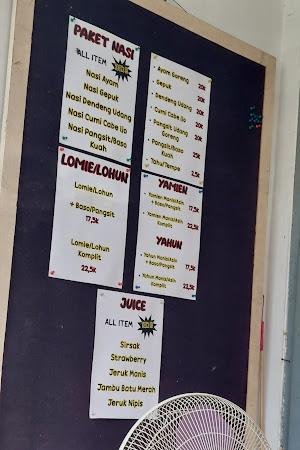 PAKET NASI
ALL ITEM
Nasi Ayam
Nasi Gepuk
Nasi Dendeng Udang
Nasi Cumi Cabe Ijo
Nasi Pangsit/Baso
Kuah
• Ayam Goreng 20K
• Gepuk 20K
• Dendeng Udang 20K
• Cumi Cabe Ijo 20K
• Pangsit Udang
Goreng 20K
• Pangsit/Baso
Kuah
• Tahu/Tempe 2,5K
LOMIE/LOHUN
Lomie/Lohun
+ Baso/Pangsit
17,5K
Lomie/Lohun
Komplit
22,5K
YAMIEN
• Yamien Manis/Asin
+ Baso/Pangsit 17,5K
• Yamien Manis/Asin
Komplit 22,5K
YAHUN
• Yahun Manis/Asin
+ Baso/Pangsit 17,5K
• Yahun Manis/Asin
Komplit 22,5K
JUICE
ALL ITEM
Sirsak
Strawberry
Jeruk Manis
Jambu Batu Merah
Jeruk Nipis